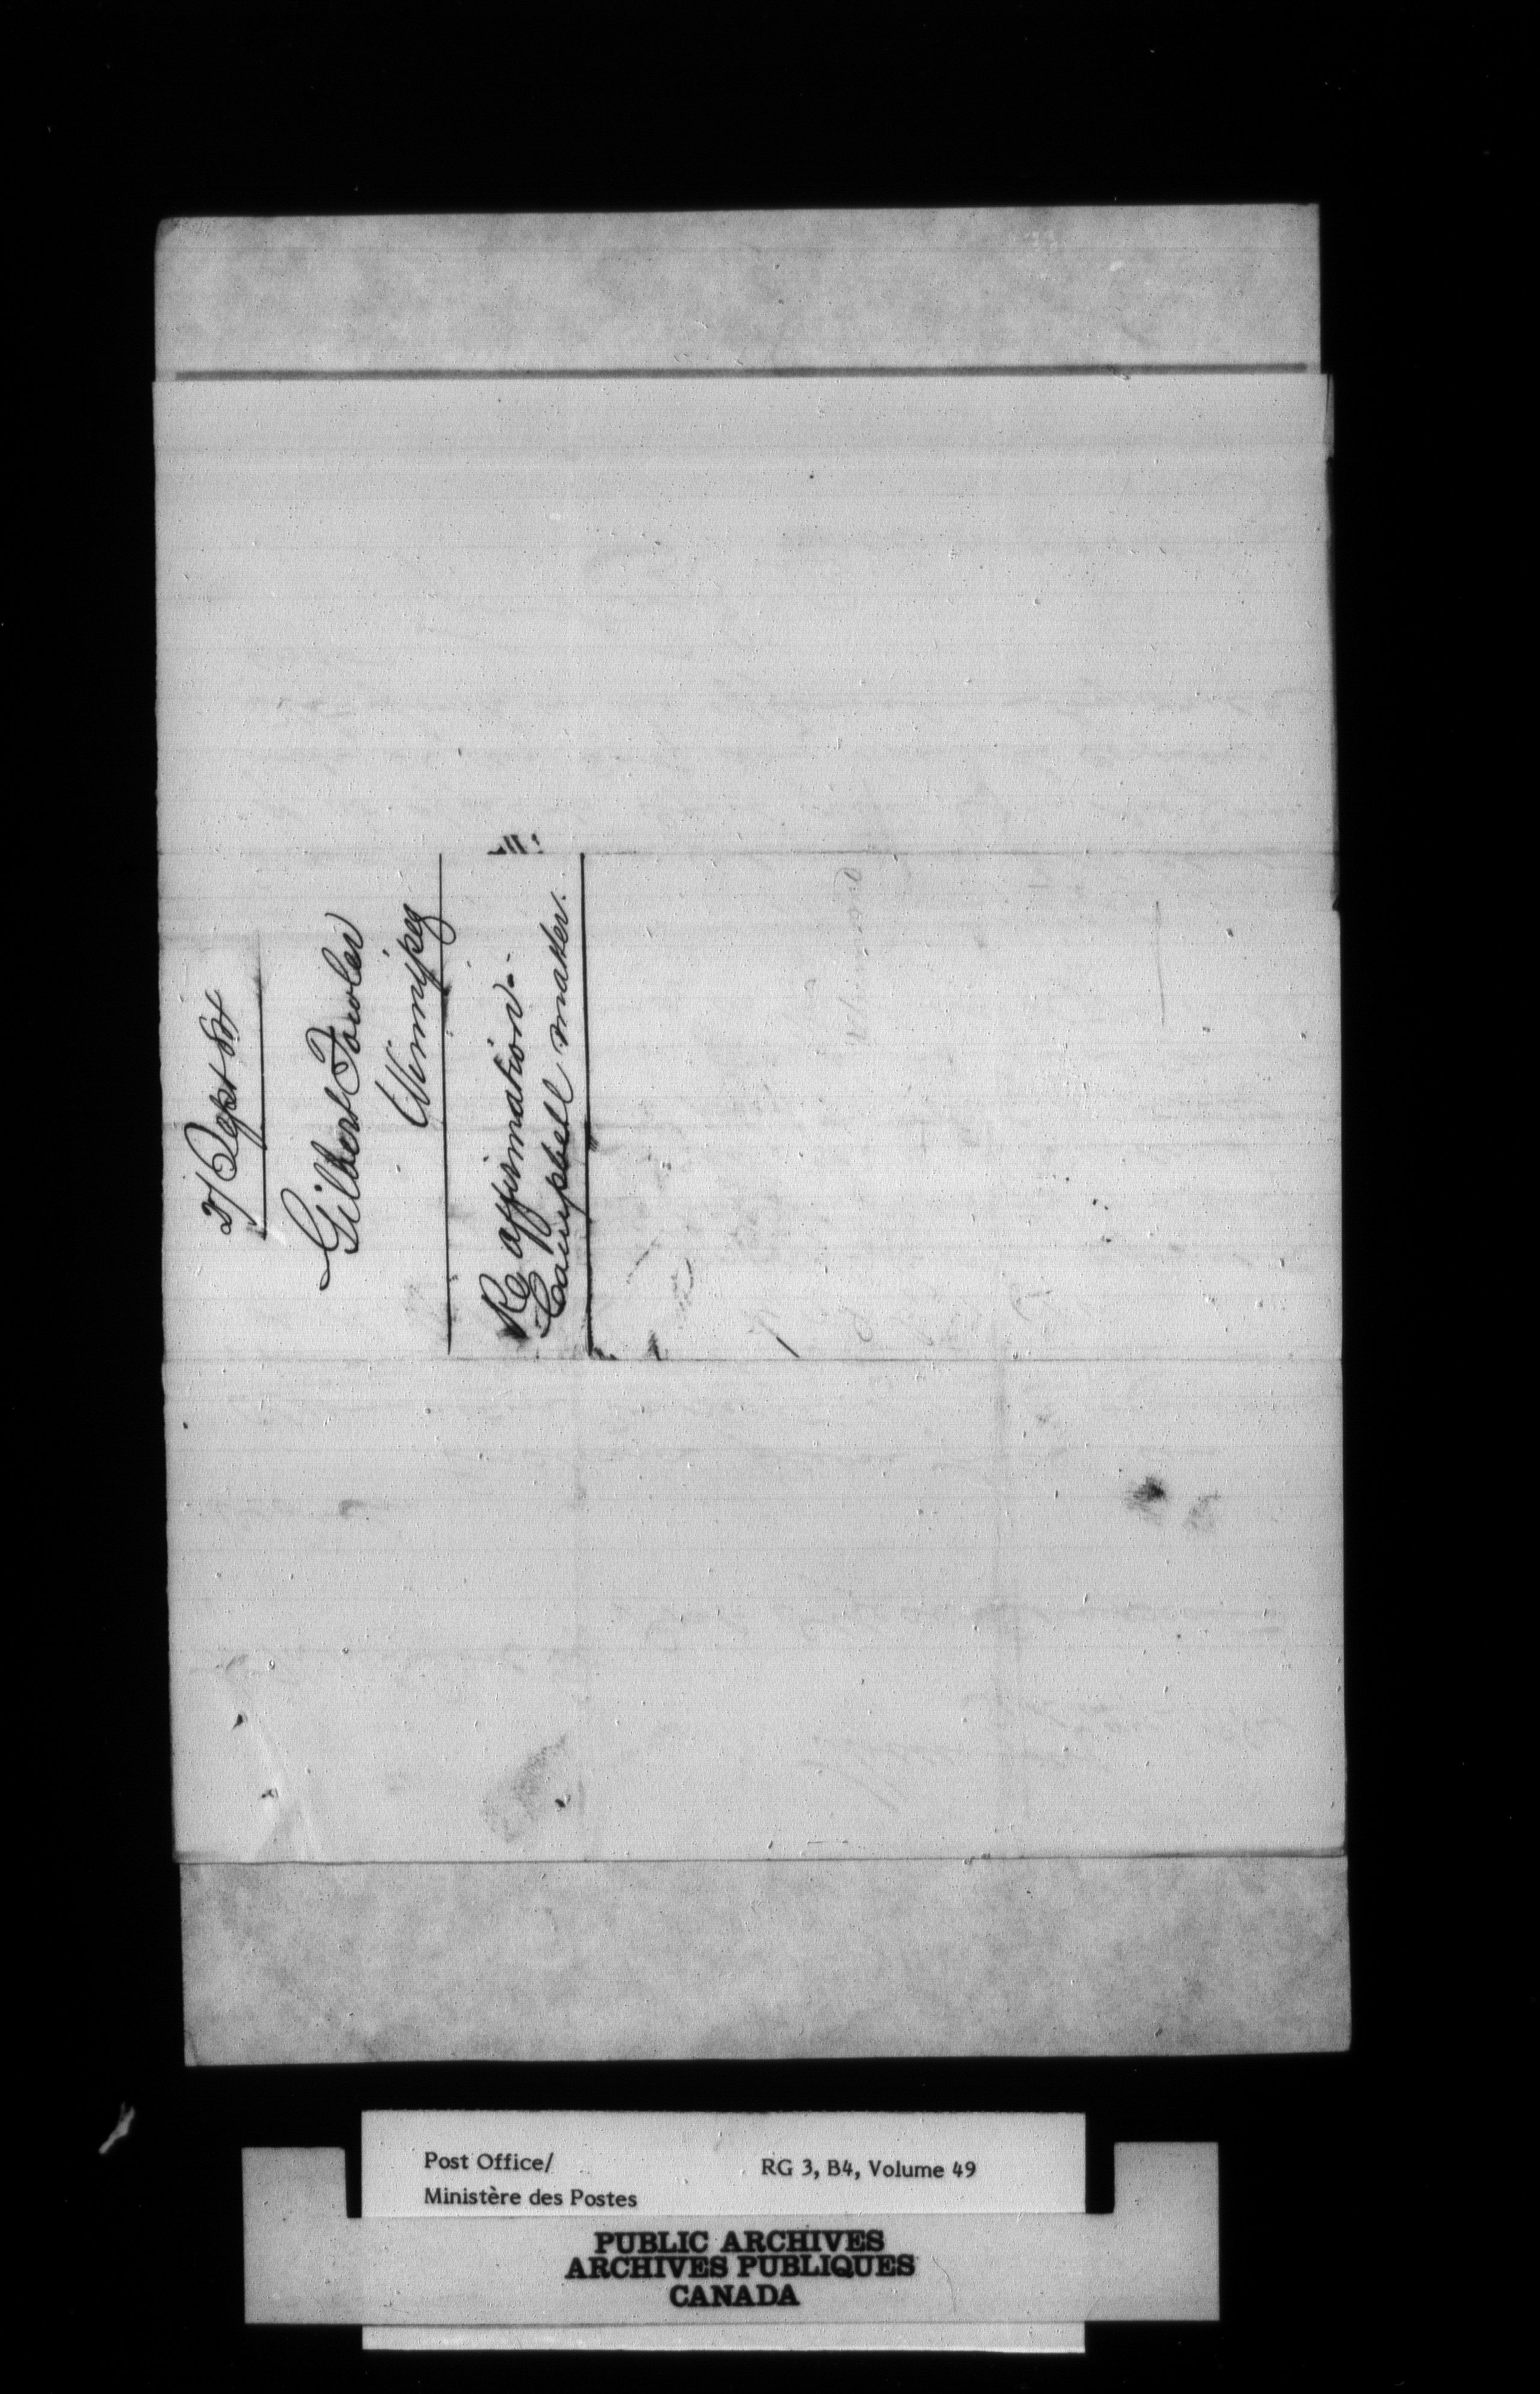 2/ Sept 84
Gilbert Fowler
Winnipeg
Re affirmation -
Campbell matter.
Post Office/
Ministère des Postes
RG 3, B4, Volume 49
PUBLIC ARCHIVES
ARCHIVES PUBLIQUES
CANADA